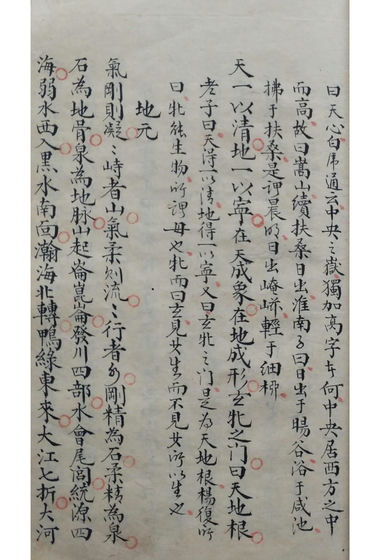 曰天心白虎通云中央之嶽獨加高字者何中央居西方之中
而高故曰嵩山續扶桑日出淮南子曰日出于暘谷浴于咸池
拂于扶桑是謂晨明日出崦嵫輕于細柳
天一以清地一以寧在天成象在地成形玄牝之門曰天地根
老子曰天淂一以清地得一以寧又曰玄牝之門是為天地根楊復所
曰牝能生物所謂母也牝而曰玄見其生而不見其所以生也
地元
氣剛則凝〻峙者山氣柔則流〻行者水剛精為石柔精為泉
石為地骨泉為地脉山起崙崑崙發川四部水會尾閭統源四
海弱水西入黑水南面瀚海北轉鴨綠東來大江七折大河